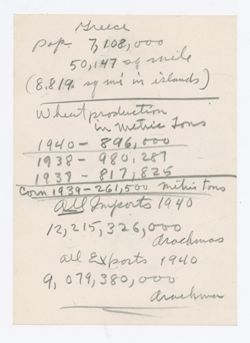 Greece
Pop. 7,108,000
50,147 sq mile
(8,819 sq mi in islands)
Wheat production
in Metric Tons
1940 - 896,000
1938 - 980,287
1939 - 817,825
Corn 1939 - 261,500 metric tons
All Imports 1940
12,215,326,000
drachmas
All Exports 1940
9,079,380,000
drachmas